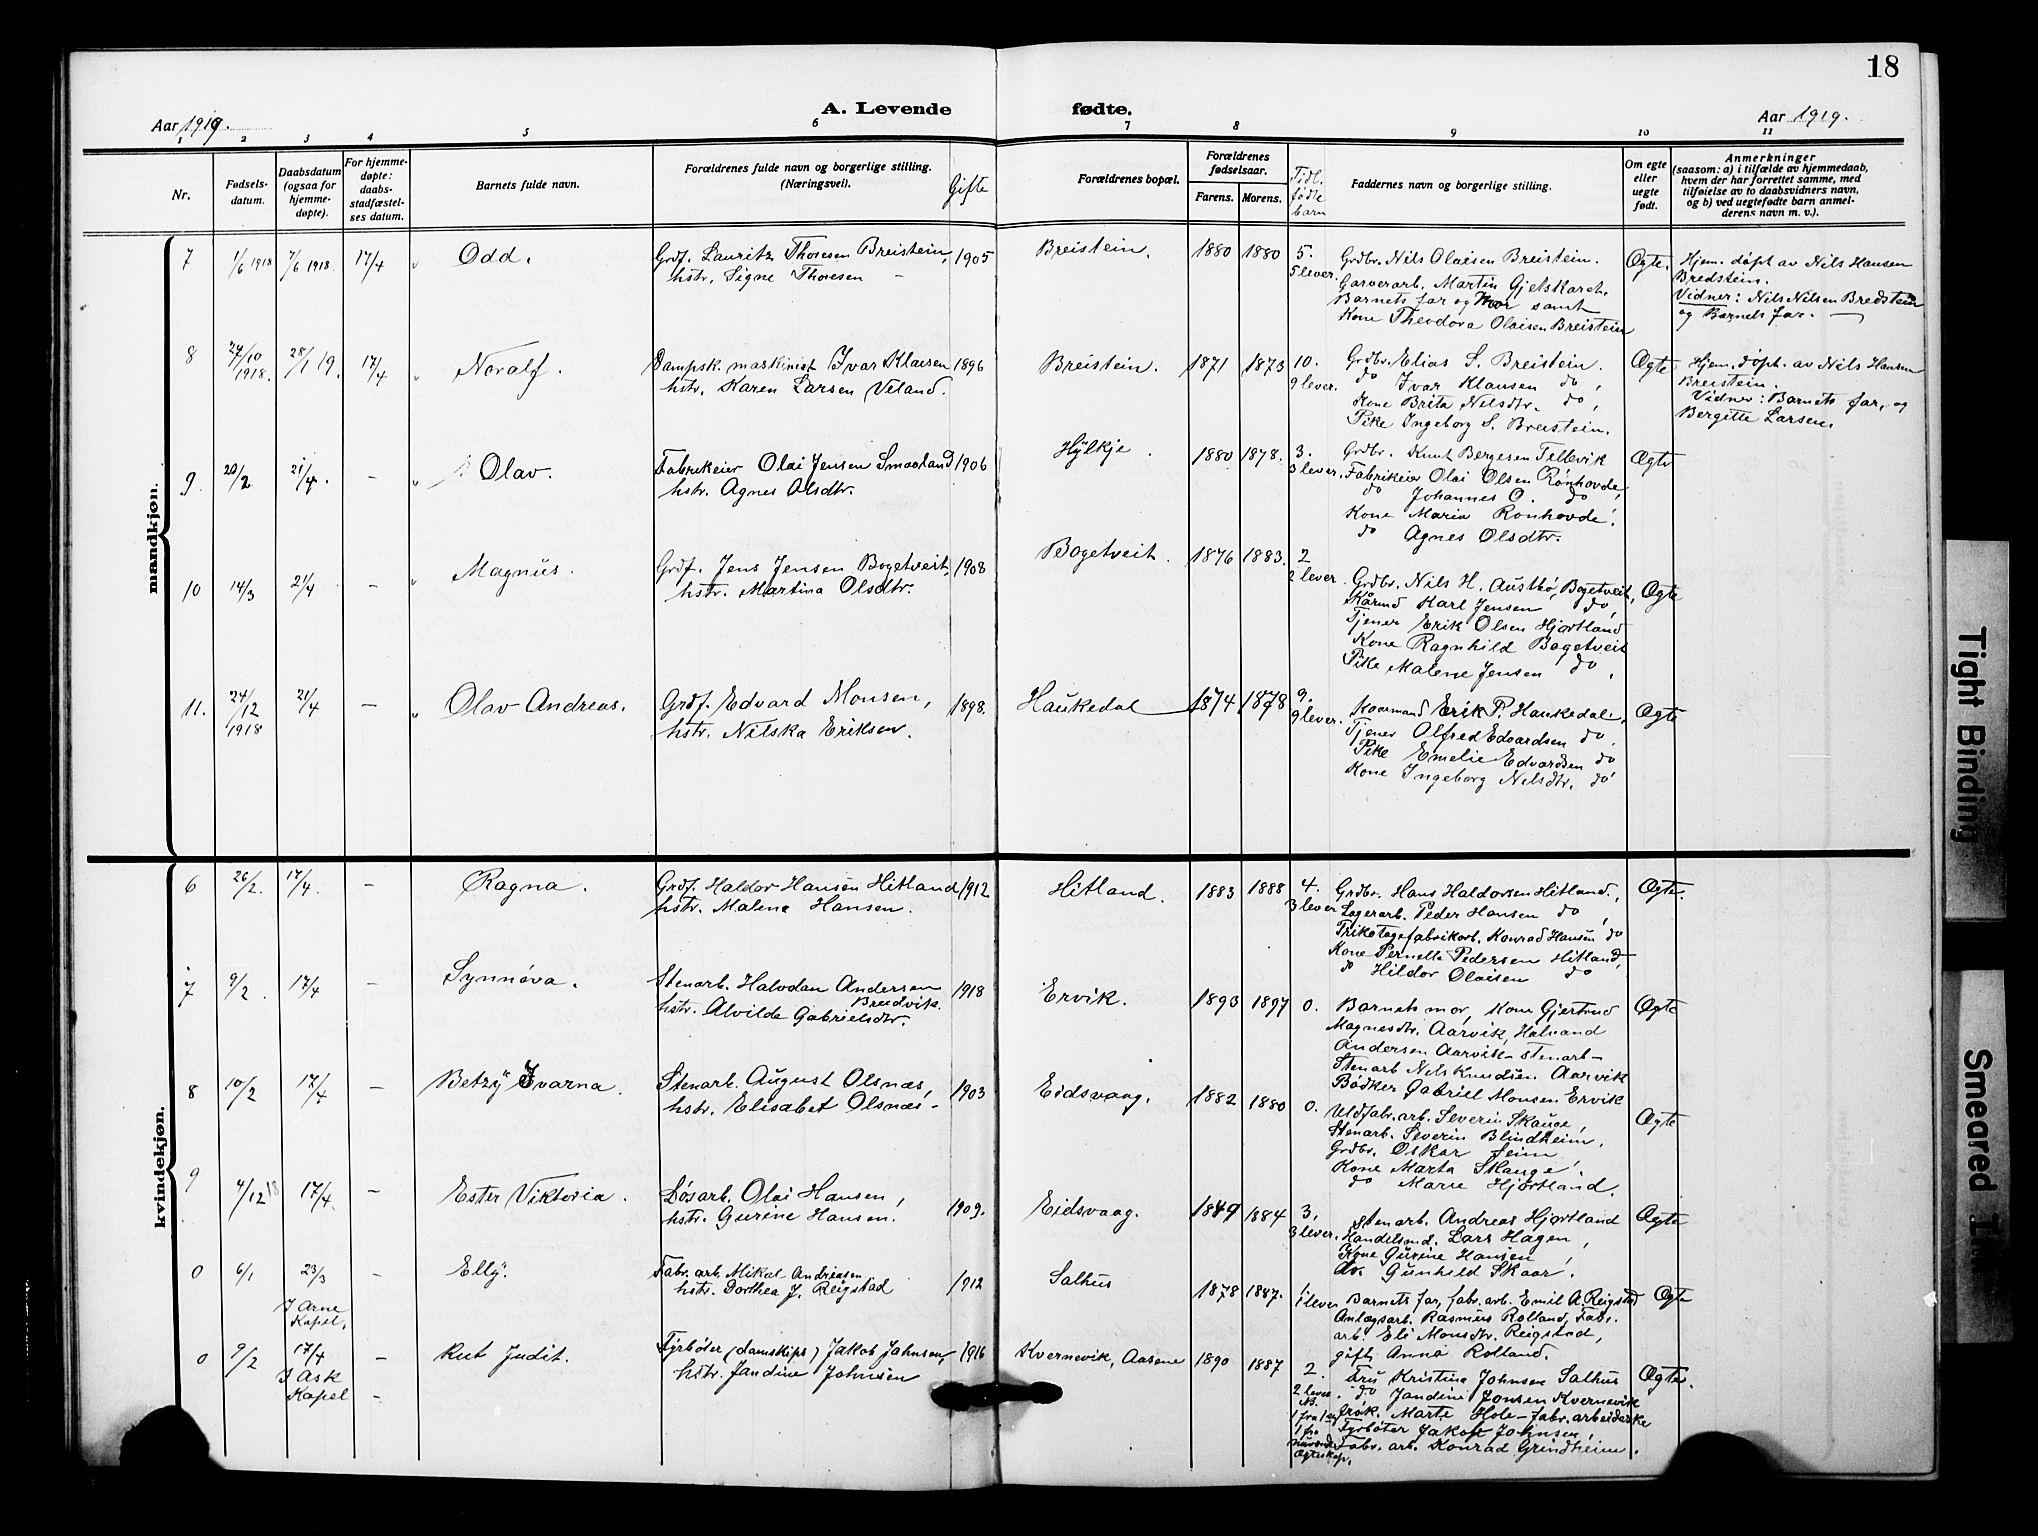 18
A. Levende fødte.
Aar 1919.
Aar 1919.
1 2 3 4 5 6 7 8 9 10 11
Nr.
Fødsels-
datum.
Daabsdatum
(ogsaa for
hjemme-
døpte).
For hjemme-
døpte:
daabs-
stadfæstel-
ses datum.
Barnets fulde navn.
Forældrenes fulde navn og borgerlige stilling.
(Næringsvei).
Gifte
Forældrenes bopæl.
Forældrenes
fødselsaar.
Farens. Morens.
Tidl.
fødte
barn
Faddernes navn og borgerlige stilling.
Om egte
eller
uegte
født.
Anmerkninger
(saasom: a) i tilfælde av hjemmedaab,
hvem der har forrettet samme, med
tilføielse av to daabsvidners navn,
og b) ved uegtefødte barn anmel-
derens navn m. v.).
mandkjøn.
7 1/6 1918 7/6 1918. 17/4 Odd.
Grdf. Lauritz Thoresen Breistein
hstr. Signe Thoresen
1905 Breistein. 1880 1880 5.
5 lever.
Grdbr. Nils Olaisen Breistein.
Garverarb. Martin Gjelskaret.
Barnets far og Mor samt
Kone Theodora Olaisen Breistein
Ægte.
Hjem. døpt av Nils Hansen
Bredstein.
Vidner: Nils Nilsen Bredstein
og Barnets far.
8 27/10 1918. 28/1 19. 17/4 Noralf.
Dampsk. maskinist Ivar Klausen
hstr. Karen Larsen Veland.
1896 Breistein. 1871 1873 10.
9 lever.
Grdbr. Elias S. Breistein.
do Ivar Klausen do,
Kone Brita Nelsdtr. do,
Pike Ingeborg S. Breistein.
Ægte
Hjem. døpt. av Nils Hansen
Breistein.
Vidner: Barnets far, og
Bergitte Larsen.
9. 20/2 21/4. - Olav.
Fabrikeier Olai Jensen Smaaland
hstr. Agnes Olsdtr.
1906 Hylkje. 1880 1878. 3.
3 lever.
Grdbr. Knut Bergesen Tellevik
Fabrikeier Olai Olsen Rønhovde,
do Johannes O. do
Kone Maria Rønhovde.
do Agnes Olsdtr.
Ægte
10 14/3 21/4 - Magnus.
Grdf. Jens Jensen Bogetveit,
hstr. Martina Olsdtr.
1908 Bogetveit. 1876 1883. 2
2 lever.
Grdbr. Nils H. Austbø, Bogetveit,
Kårmd Karl Jensen do,
Tjener Erik Olsen Hjortland
Kone Ragnhild Bogetveit
Pike Malene Jensen do.
Ægte
11. 24/12 1918 21/4 - Olav Andreas.
Grdf. Edvard Monsen,
hstr. Nilska Eriksen.
1898. Haukedal 1874 1878 9.
9 lever.
Kaarmand Erik P. Haukedal,
Tjener Olfred Edvardsen do.
Pike Emelie Edvardsen do
Kone Ingeborg Nelsdtr. do
Ægte
kvindekjøn.
6 26/2. 17/4. - Ragna.
Grdf. Haldor Hansen Hitland
hstr. Malena Hansen.
1912 Hitland. 1883 1888 4.
3 lever
Grdbr. Hans Haldorsen Hitland,
Lagerarb. Peder Hansen do,
Trikotagefabrikarb. Konrad Hansen do
Kone Pernella Pedersen Hitland,
do Hildor Olaisen do
Ægte.
7 9/2. 17/4. - Synnøva.
Stenarb. Halvdan Andersen
Breidvik.
hstr. Alvilde Gabrielsdtr.
1918 Ervik. 1893 1897 0.
Barnets mor, Kone Gjertrud
Magnesdtr. Aarvik, Halvand
Andersen Aarvik- stenarb-
Stenarb Nels Knudsen Aarvik
Bødker Gabriel Monsen Ervik
Ægte
8 10/2 17/4 - Betzy Ivarna.
Stenarb. August Olsnæs,
hstr. Elisabet Olsnæs-
1903 Eidsvaag. 1882 1880 0.
Uldfabr.arb. Severin Skauge,
Stenarb. Severin Blindheim,
Grdbr. Oskar Seim
Kone Marta Skauge.
do Marie Hjortland.
Ægte
9 4/12 18 17/4. - Ester Viktoria.
Løsarb. Olai Hansen,
hstr. Gurine Hansen.
1909. Eidsvaag. 1849 1884 3.
3 lever.
Stenarb. Andreas Hjortland
Handelsmd. Lars Hagen,
Kone Gurine Hansen,
do. Gunhild Skaar.
Ægte
0 6/1 23/3 - Elly.
I Arne
Kapel.
Fabr. arb. Mikal Andreasen
hstr. Dorthea J. Reigstad
1912 Salhus 1878 1887.
1 lever
Barnets far, fabr. arb. Emil A. Reigstad
Anlægsarb. Rasmus Rolland, Fabr.
arb. Eli Monsdtr. Reigstad,
gift, Anna Rolland.
Ægte
0 9/2 17/4 - Rut Judit.
I Ask
Kapel -
Fyrbøter (damskips) Jakob Johnsen,
hstr. Jandine Johnsen
1916 Kvernevik, Aasene 1890 1887 2.
2 lever
1 fra
1 fra
nuværende
Ægteskap.
Fru Kristina Johnsen Salhus
do Jandine Jonsen Kvernevik
frøk. Marte Hole- fabr. arbeiderske
Fyrbøter Jakob Johnsen,
Fabr. arb. Konrad Grindheim.
Ægte.
Tight Binding
Smeared